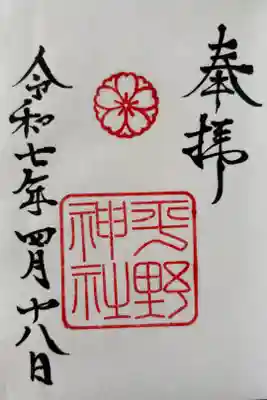 奉拝
平野
神社
令和七年四月十八日